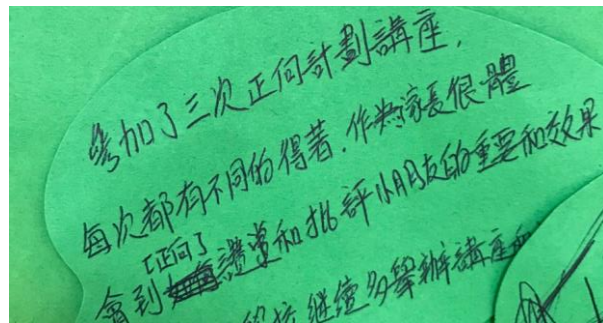 參加了三次正向計劃講座，
每次都有不同的得著，作為家長很體
會到「正向」讚賞和批評小朋友的重要和效果
學校繼續多舉辦講座